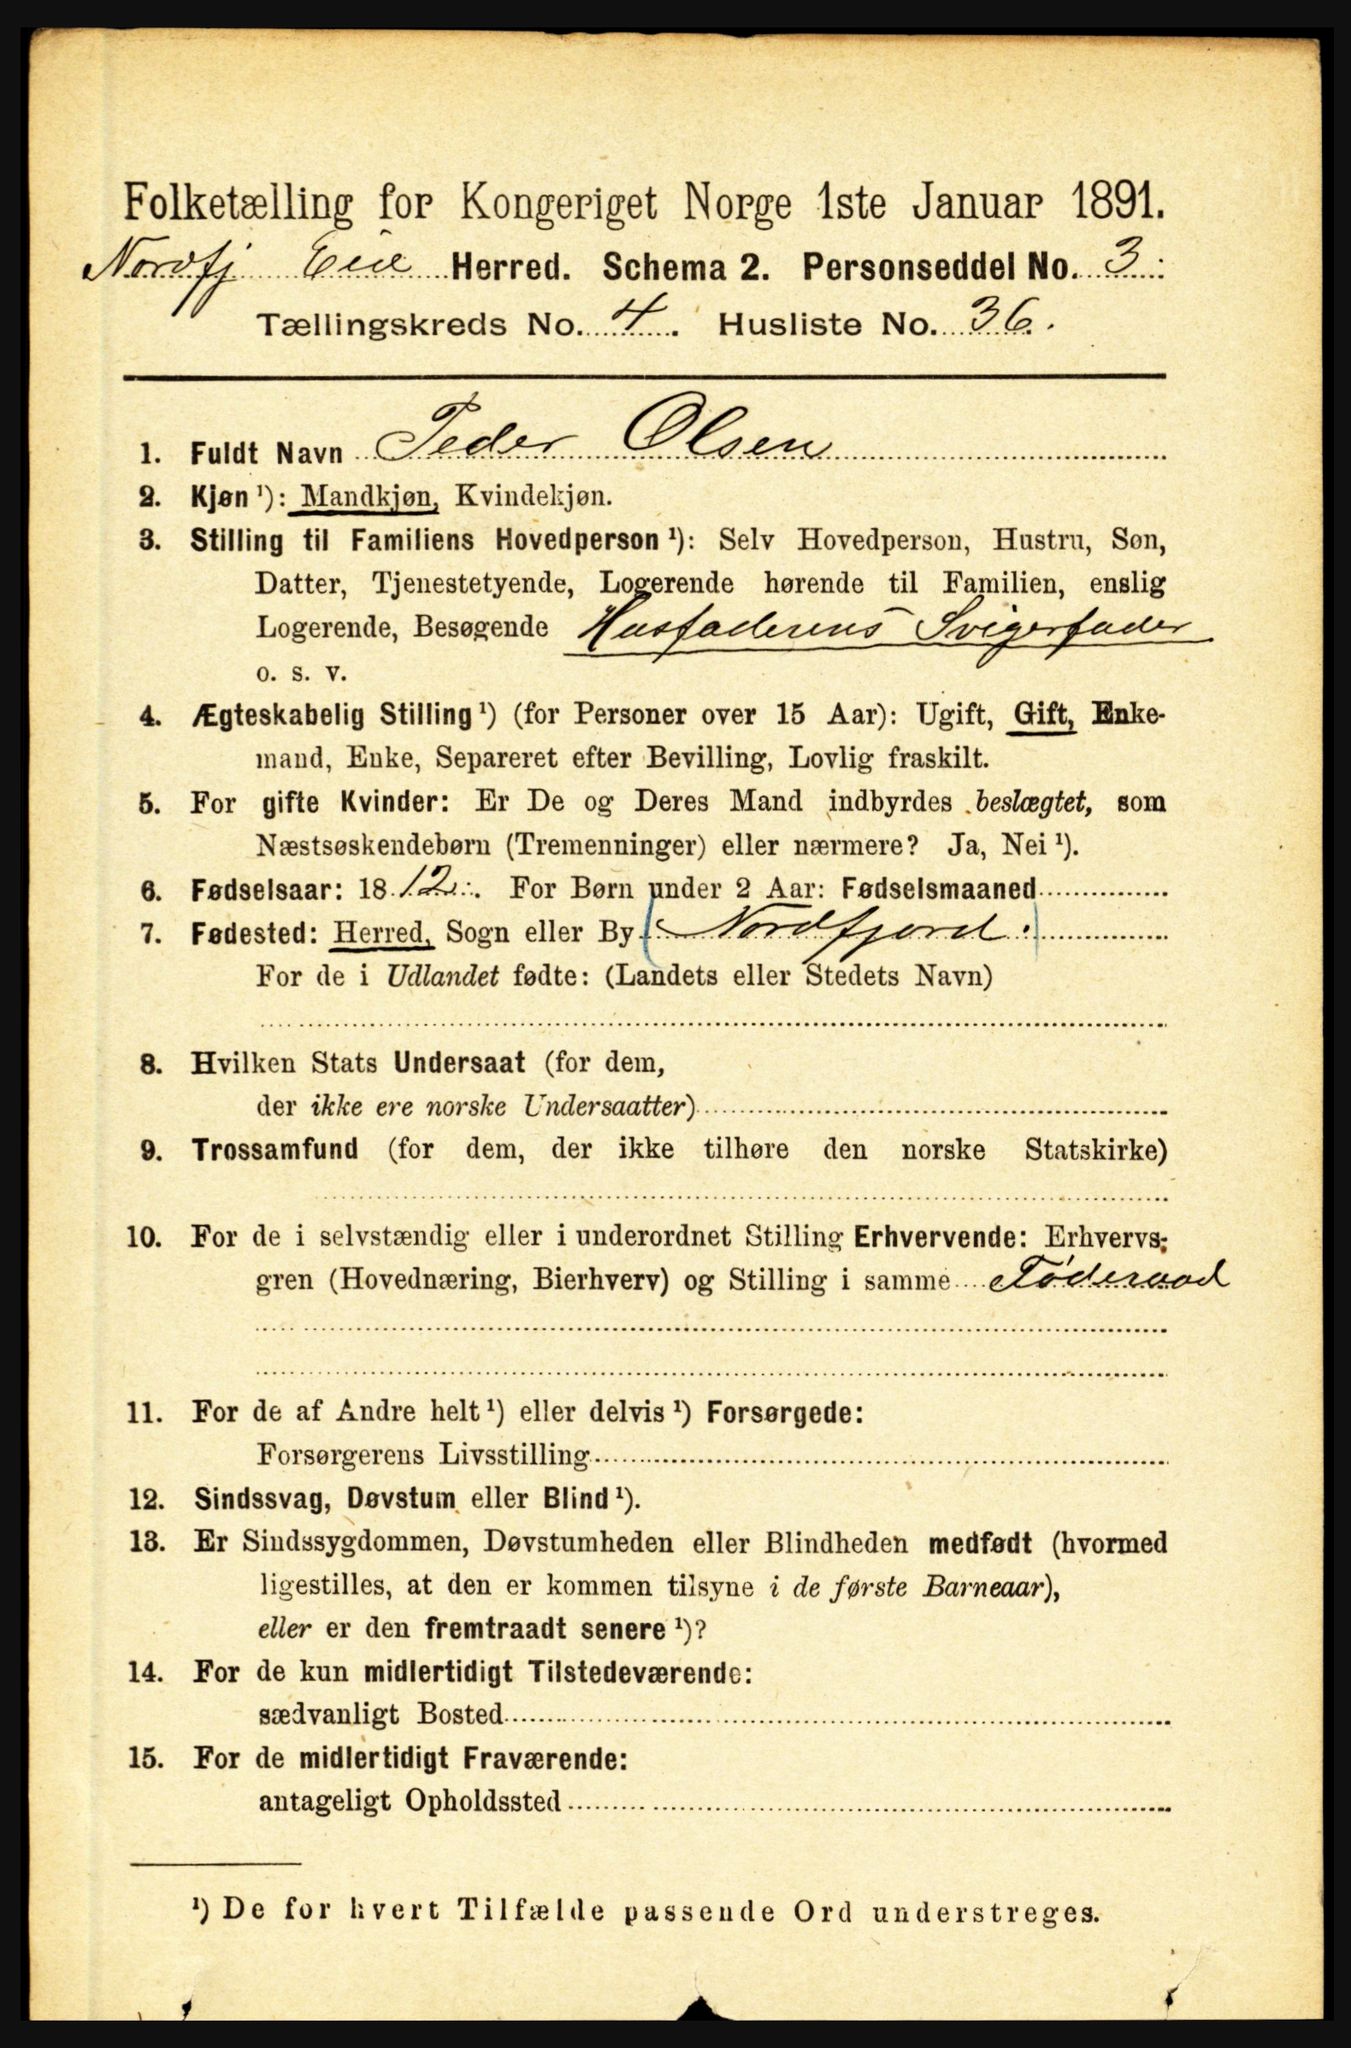 Folketælling for Kongeriget Norge 1ste Januar 1891.
Nordfj Eid Herred. Schema 2. Personseddel No. 3.
Tællingskreds No. 4. Husliste No. 36.
1. Fuldt Navn Peder Olsen
2. Kjøn ¹): Mandkjøn, Kvindekjøn.
3. Stilling til Familiens Hovedperson ¹): Selv Hovedperson, Hustru, Søn,
Datter, Tjenestetyende, Logerende hørende til Familien, enslig
Logerende, Besøgende Husfaderens Svigerfader
o. s. v.
4. Ægteskabelig Stilling ¹) (for Personer over 15 Aar): Ugift, Gift, Enke-
mand, Enke, Separeret efter Bevilling, Lovlig fraskilt.
5. For gifte Kvinder: Er De og Deres Mand indbyrdes beslægtet, som
Næstsøskendebørn (Tremenninger) eller nærmere? Ja, Nei ¹).
6. Fødselsaar: 1812. For Børn under 2 Aar: Fødselsmaaned
7. Fødested: Herred, Sogn eller By (Nordfjord.)
For de i Udlandet fødte: (Landets eller Stedets Navn)
8. Hvilken Stats Undersaat (for dem,
der ikke ere norske Undersaatter)
9. Trossamfund (for dem, der ikke tilhøre den norske Statskirke)
10. For de i selvstændig eller i underordnet Stilling Erhvervende: Erhvervs-
gren (Hovednæring, Bierhverv) og Stilling i samme Føderaad
11. For de af Andre helt ¹) eller delvis ¹) Forsørgede:
Forsørgerens Livsstilling
12. Sindssvag, Døvstum eller Blind ¹).
13. Er Sindssygdommen, Døvstumheden eller Blindheden medfødt (hvormed
ligestilles, at den er kommen tilsyne i de første Barneaar),
eller er den fremtraadt senere ¹)?
14. For de kun midlertidigt Tilstedeværende:
sædvanligt Bosted
15. For de midlertidigt Fraværende:
antageligt Opholdssted
¹) De for hvert Tilfælde passende Ord understreges.